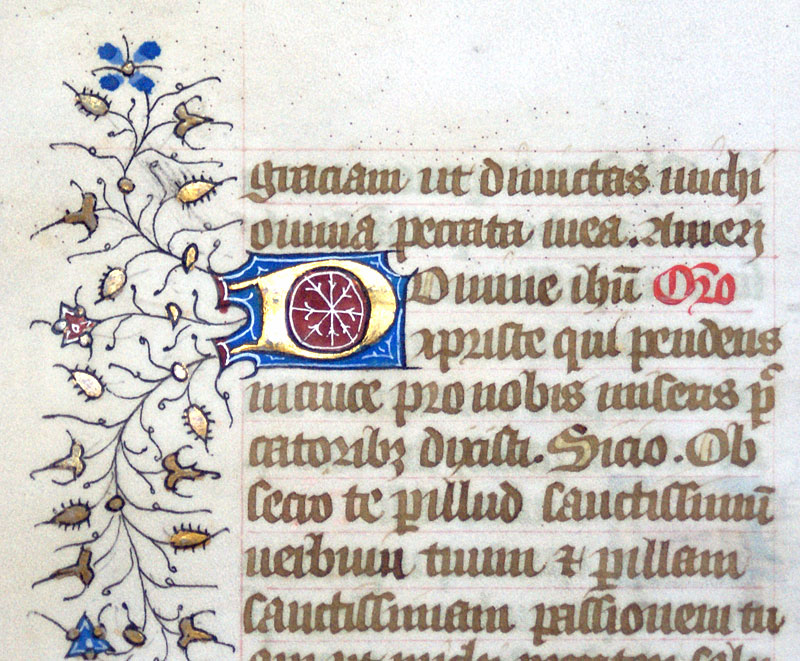 graciam ut dimictas michi
omnia peccata mea. Amen
Domine ihū Oro
xpriste qui pendens
in cruce pro nobis miseris pec
catoribꝫ dixisti. Sicio. Ob
secro te ꝑ illud sanctissimū
uerbum tuum ⁊ ꝑ illam
sanctissimam passionem tu
am ut michi peccatori